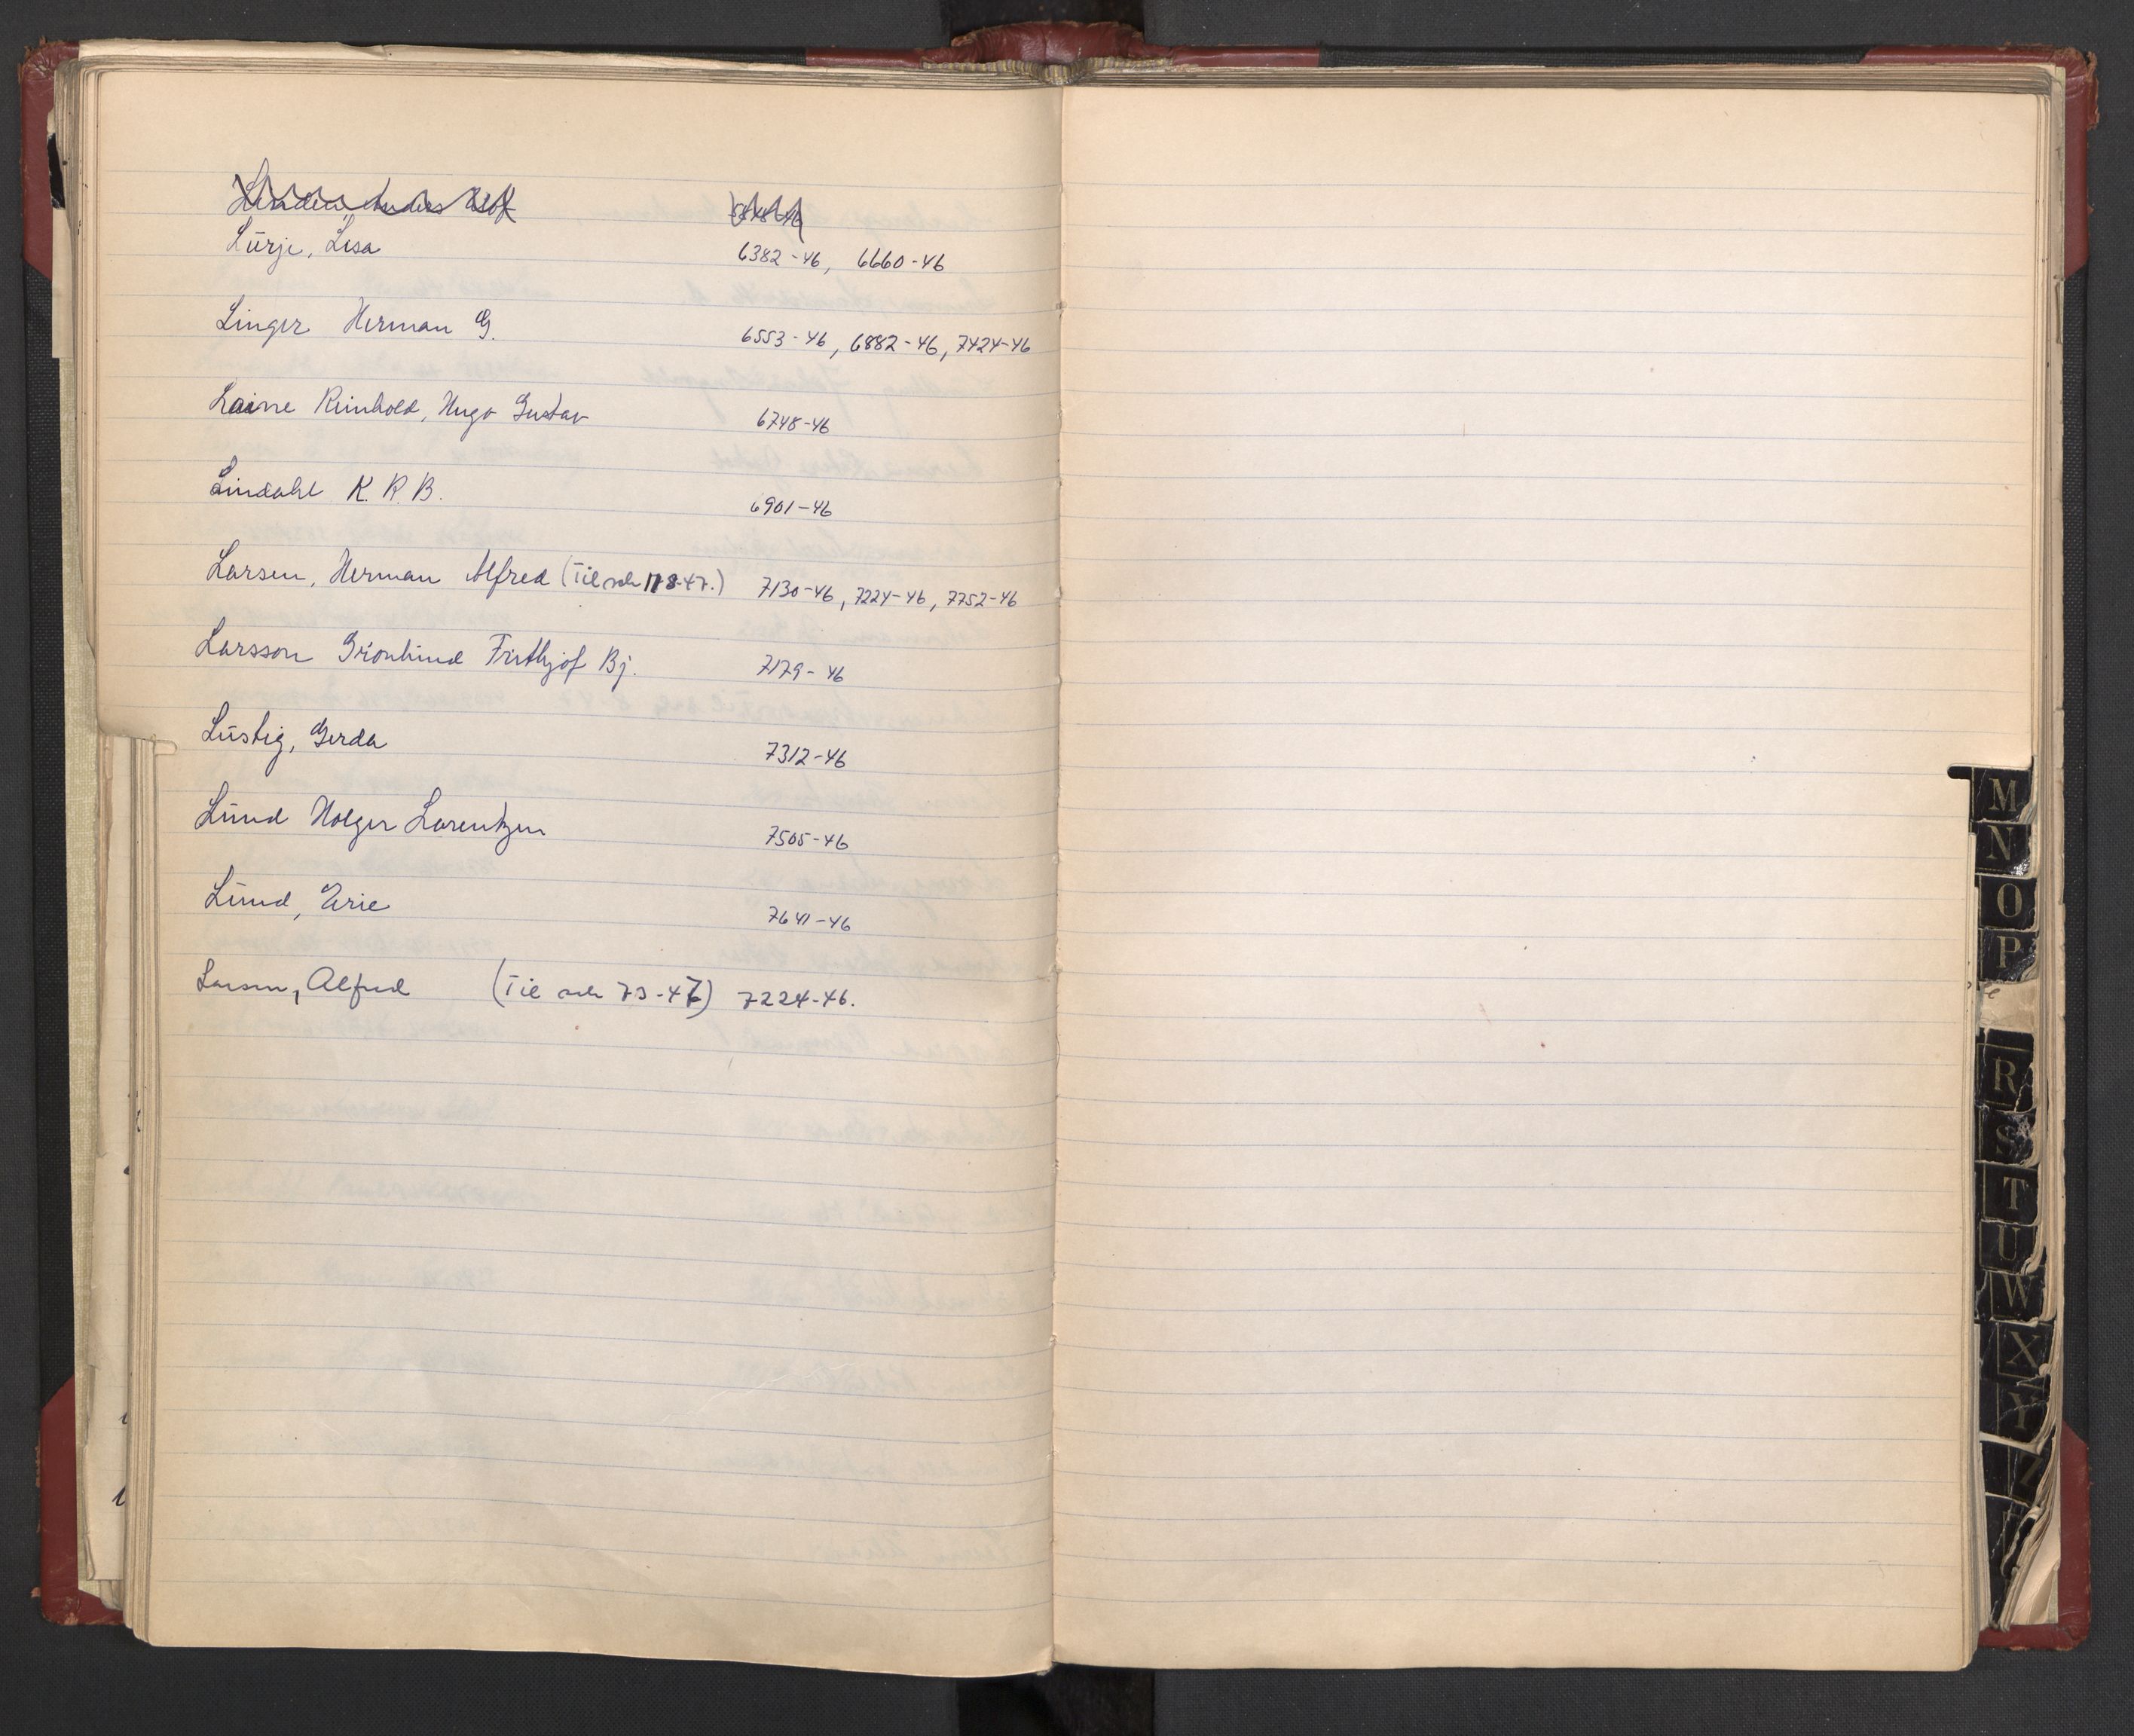 Lürje, Lisa 6382-46, 6660-46
Linger Herman G. 6553-46, 6882-46, 7424-46
Laine Reinhold, Hugo Gustav 6748-46
Lindahl K. R. B. 6901-46
Larsen, Herman Alfred (Til 47.) 7130-46, 7224-46, 7752-46
Larsson Frithjof Bj. 7179-46
Lustig, Gerda 7312-46
Lund Holger Larentzen 7505-46
Lund, Eric 7641-46
Larsen, Alfred (Til 73-47) 7224-46.
M
N
O
P
R
S
T
U
W
X
Y
Z